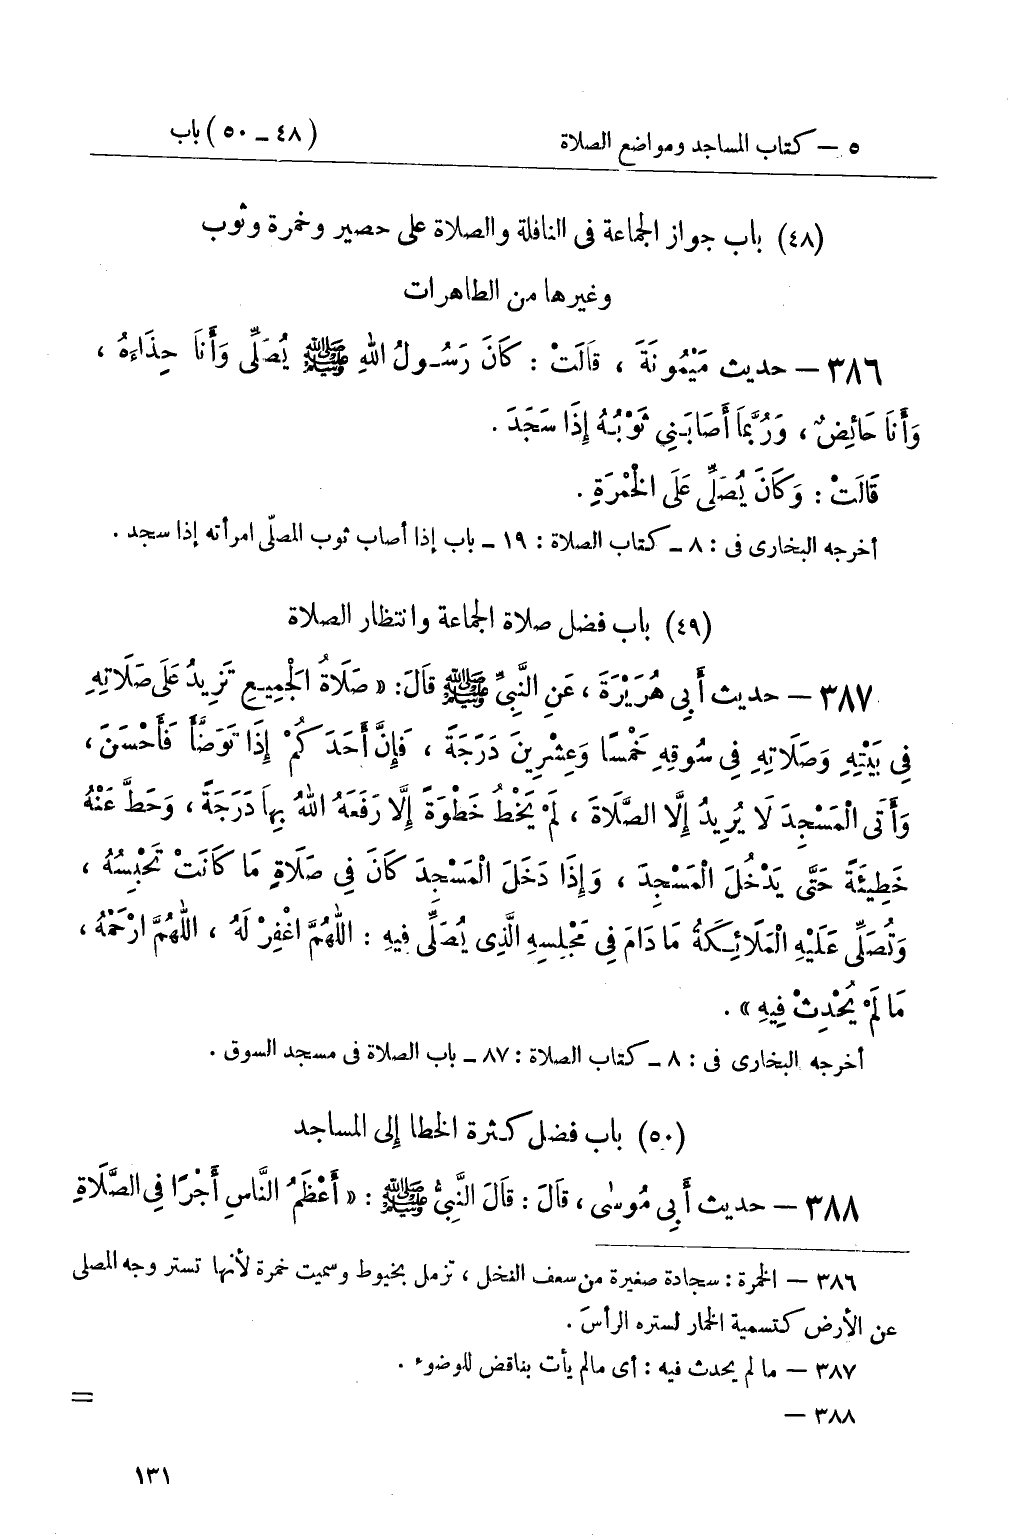 ٥ — كتاب المساجد ومواضع الصلاة (٤٨ – ٥٠) باب
(٤٨) باب جواز الجماعة فى النافلة والصلاة على حصير وخمرة وثوب
وغيرها من الطاهرات
٣٨٦ — حديث مَيْمُونَةَ ، قَالَتْ : كَانَ رَسُولُ اللهِ ﷺ يُصَلِّى وَأَنَا حِذَاءَهُ ،
وَأَنَا حَائِضٌ ، وَرُبَّمَا أَصَابَنِي ثَوْبُهُ إِذَا سَجَدَ .
قَالَتْ : وَكَانَ يُصَلِّى عَلَى الْخُمْرَةِ .
أخرجه البخارى فى : ٨ – كتاب الصلاة : ١٩ – باب إذا أصاب ثوب المصلّى امرأته إذا سجد .
(٤٩) باب فضل صلاة الجماعة وانتظار الصلاة
٣٨٧ — حديث أَبِي هُرَيْرَةَ ، عَنِ النَّبِيِّ ﷺ قَالَ: « صَلَاةُ الْجَمِيعِ تَزِيدُ عَلَى صَلَاتِهِ
فِي بَيْتِهِ وَصَلَاتِهِ فِي سُوقِهِ خَمْسًا وَعِشْرِينَ دَرَجَةً ، فَإِنَّ أَحَدَكُمْ إِذَا تَوَضَّأَ فَأَحْسَنَ ،
وَأَتَى الْمَسْجِدَ لَا يُرِيدُ إِلَّا الصَّلَاةَ ، لَمْ يَخْطُ خَطْوَةً إِلَّا رَفَعَهُ اللهُ بِهَا دَرَجَةً ، وَحَطَّ عَنْهُ
خَطِيئَةً حَتَّى يَدْخُلَ الْمَسْجِدَ ، وَإِذَا دَخَلَ الْمَسْجِدَ كَانَ فِي صَلَاةٍ مَا كَانَتْ تَحْبِسُهُ ،
وَتُصَلِّى عَلَيْهِ الْمَلَائِكَةُ مَا دَامَ فِي مَجْلِسِهِ الَّذِى يُصَلِّى فِيهِ : اللَّهُمَّ اغْفِرْ لَهُ ، اللَّهُمَّ ارْحَمْهُ ،
مَا لَمْ يُحْدِثْ فِيهِ » .
أخرجه البخارى فى : ٨ – كتاب الصلاة : ٨٧ – باب الصلاة فى مسجد السوق .
(٥٠) باب فضل كثرة الخطا إلى المساجد
٣٨٨ — حديث أَبِي مُوسٰى ، قَالَ : قَالَ النَّبِيُّ ﷺ : « أَعْظَمُ النَّاسِ أَجْرًا فِي الصَّلَاةِ
٣٨٦ — الخمرة : سجادة صغيرة من سعف النخل ، تزمل بخيوط وسميت خمرة لأنها تستر وجه المصلى
عن الأرض كتسمية الخمار لستره الرأسَ .
٣٨٧ — ما لم يحدث فيه : أى مالم يأت بناقض للوضوء .
٣٨٨ —
=
١٣١